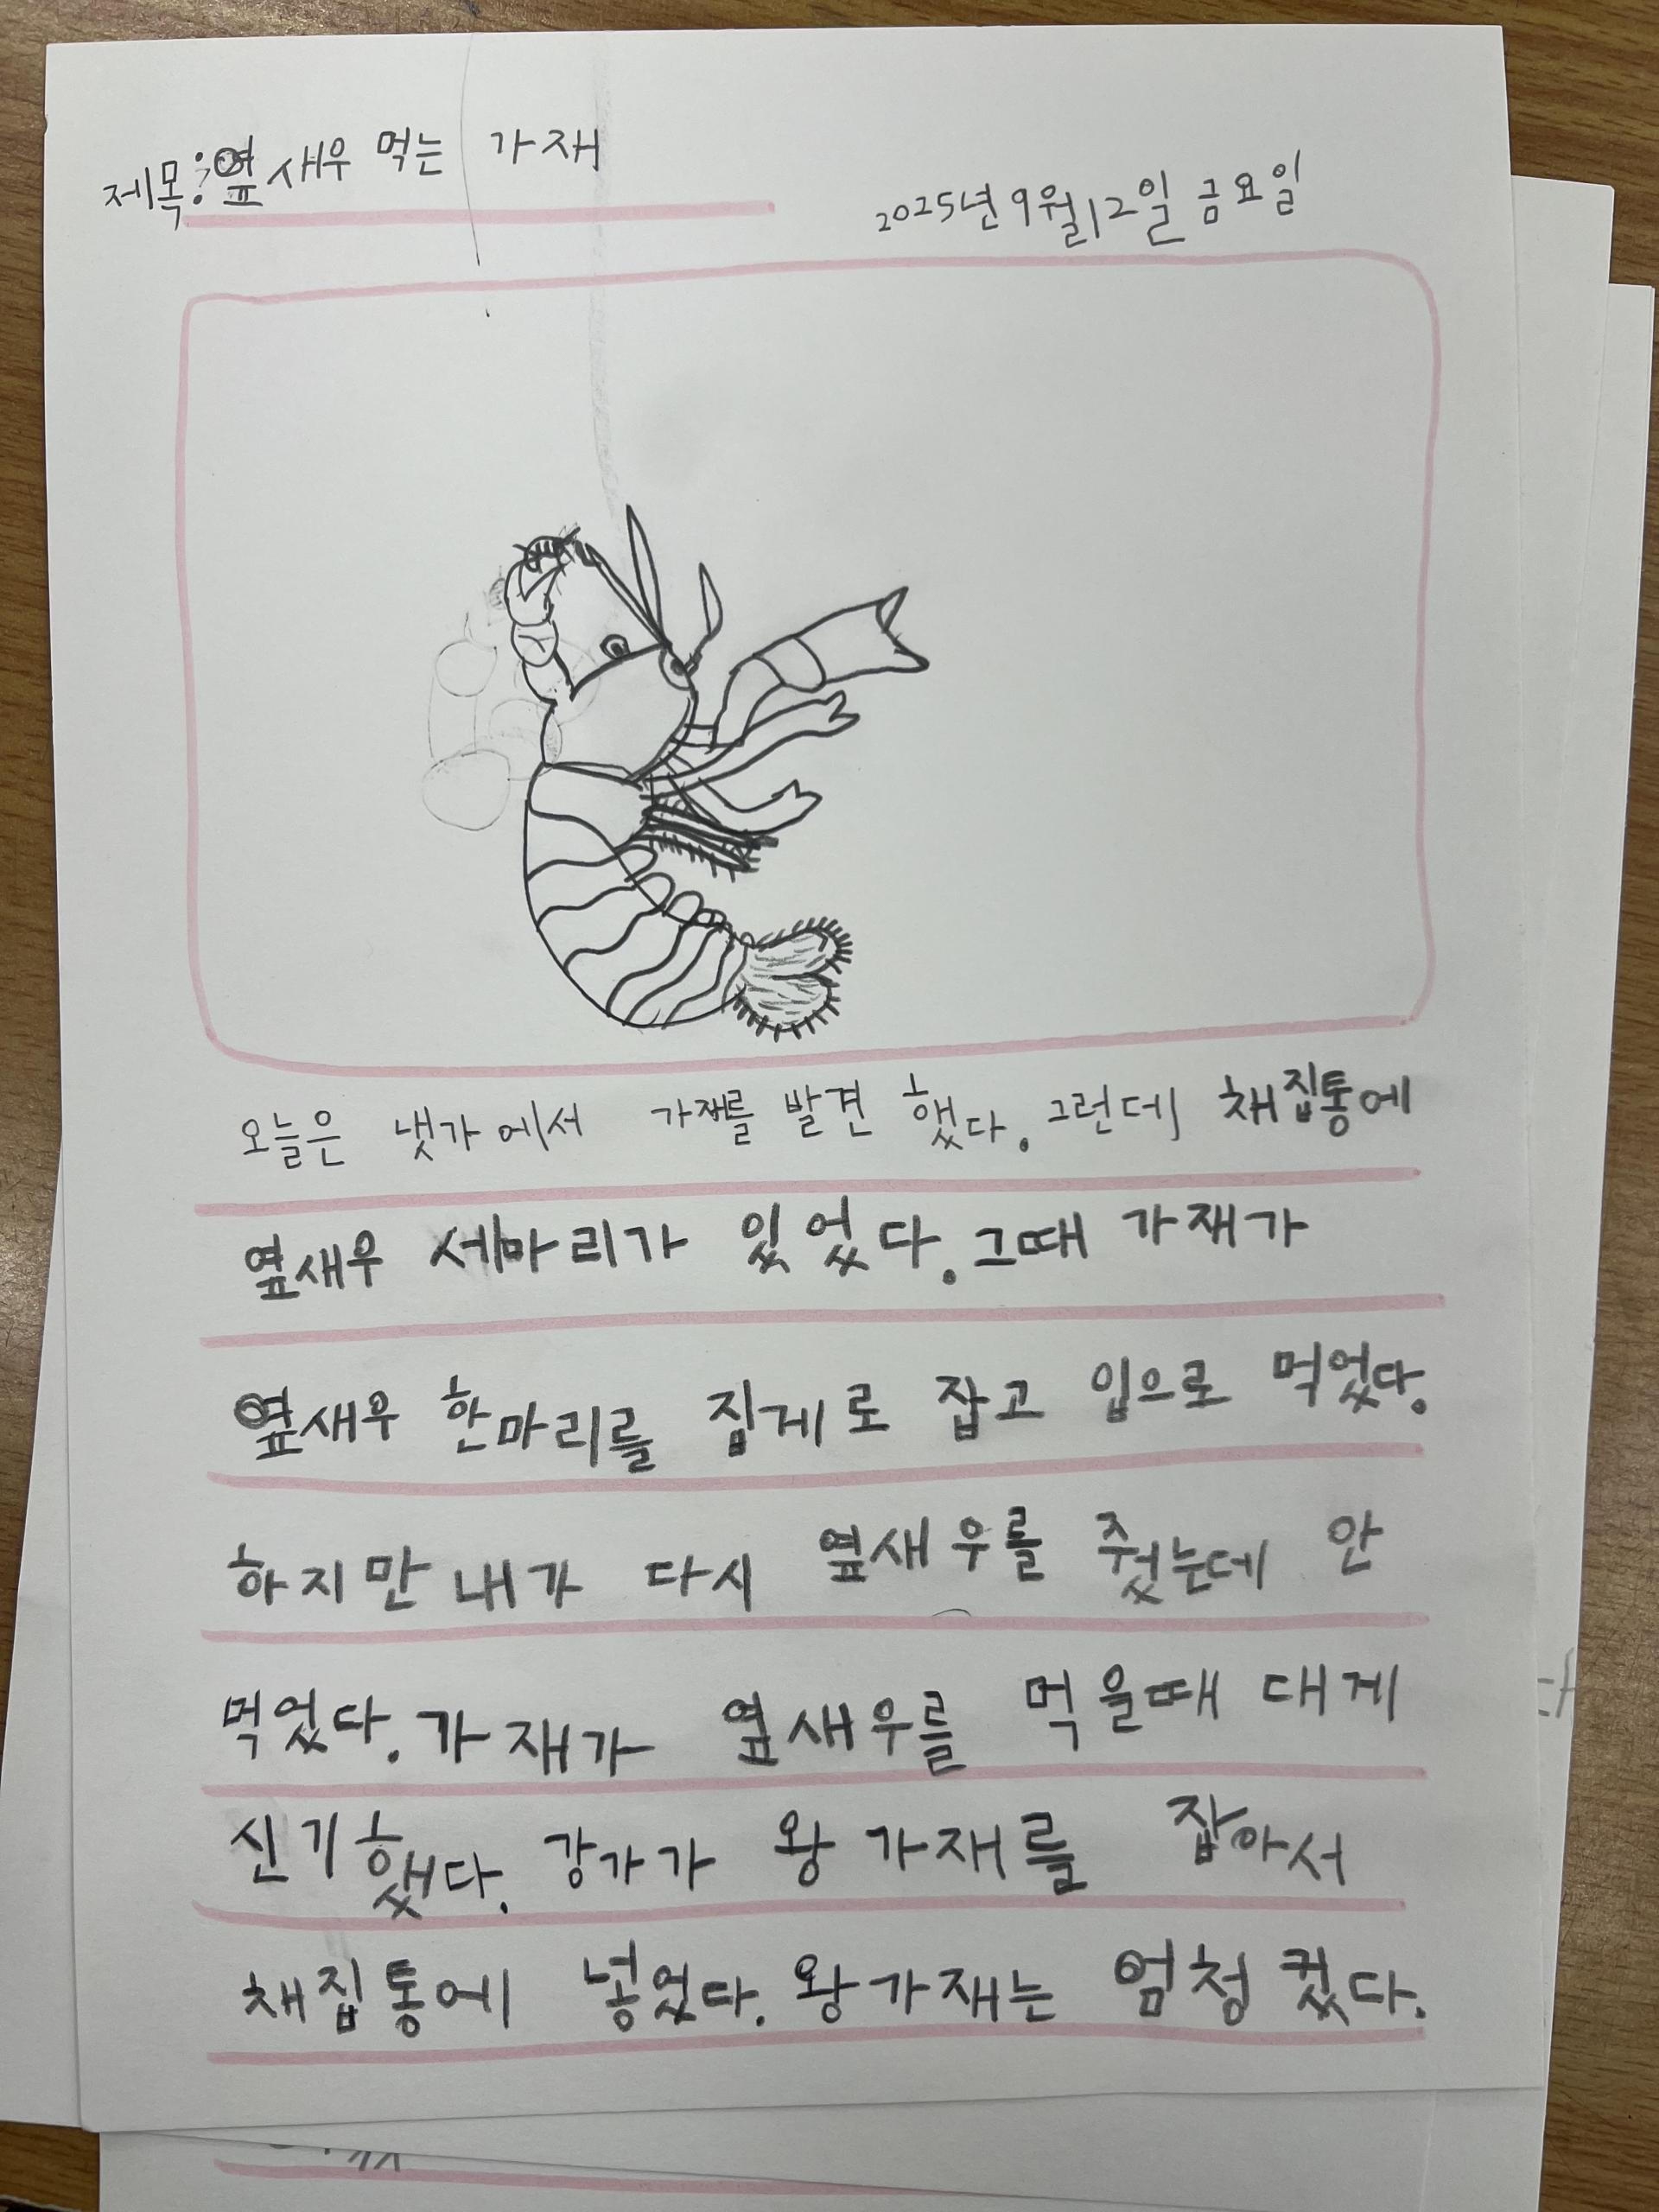 제목: 옆새우 먹는 가재
2025년 9월 12일 금요일
오늘은 냇가에서 가재를 발견 했다. 그런데 채집통에
옆새우 세마리가 있었다. 그때 가재가
옆새우 한마리를 집게로 잡고 입으로 먹었다.
하지만 내가 다시 옆새우를 줬는데 안
먹었다. 가재가 옆새우를 먹을때 대게
신기했다. 강가가 왕 가재를 잡아서
채집통에 넣었다. 왕가재는 엄청 컸다.